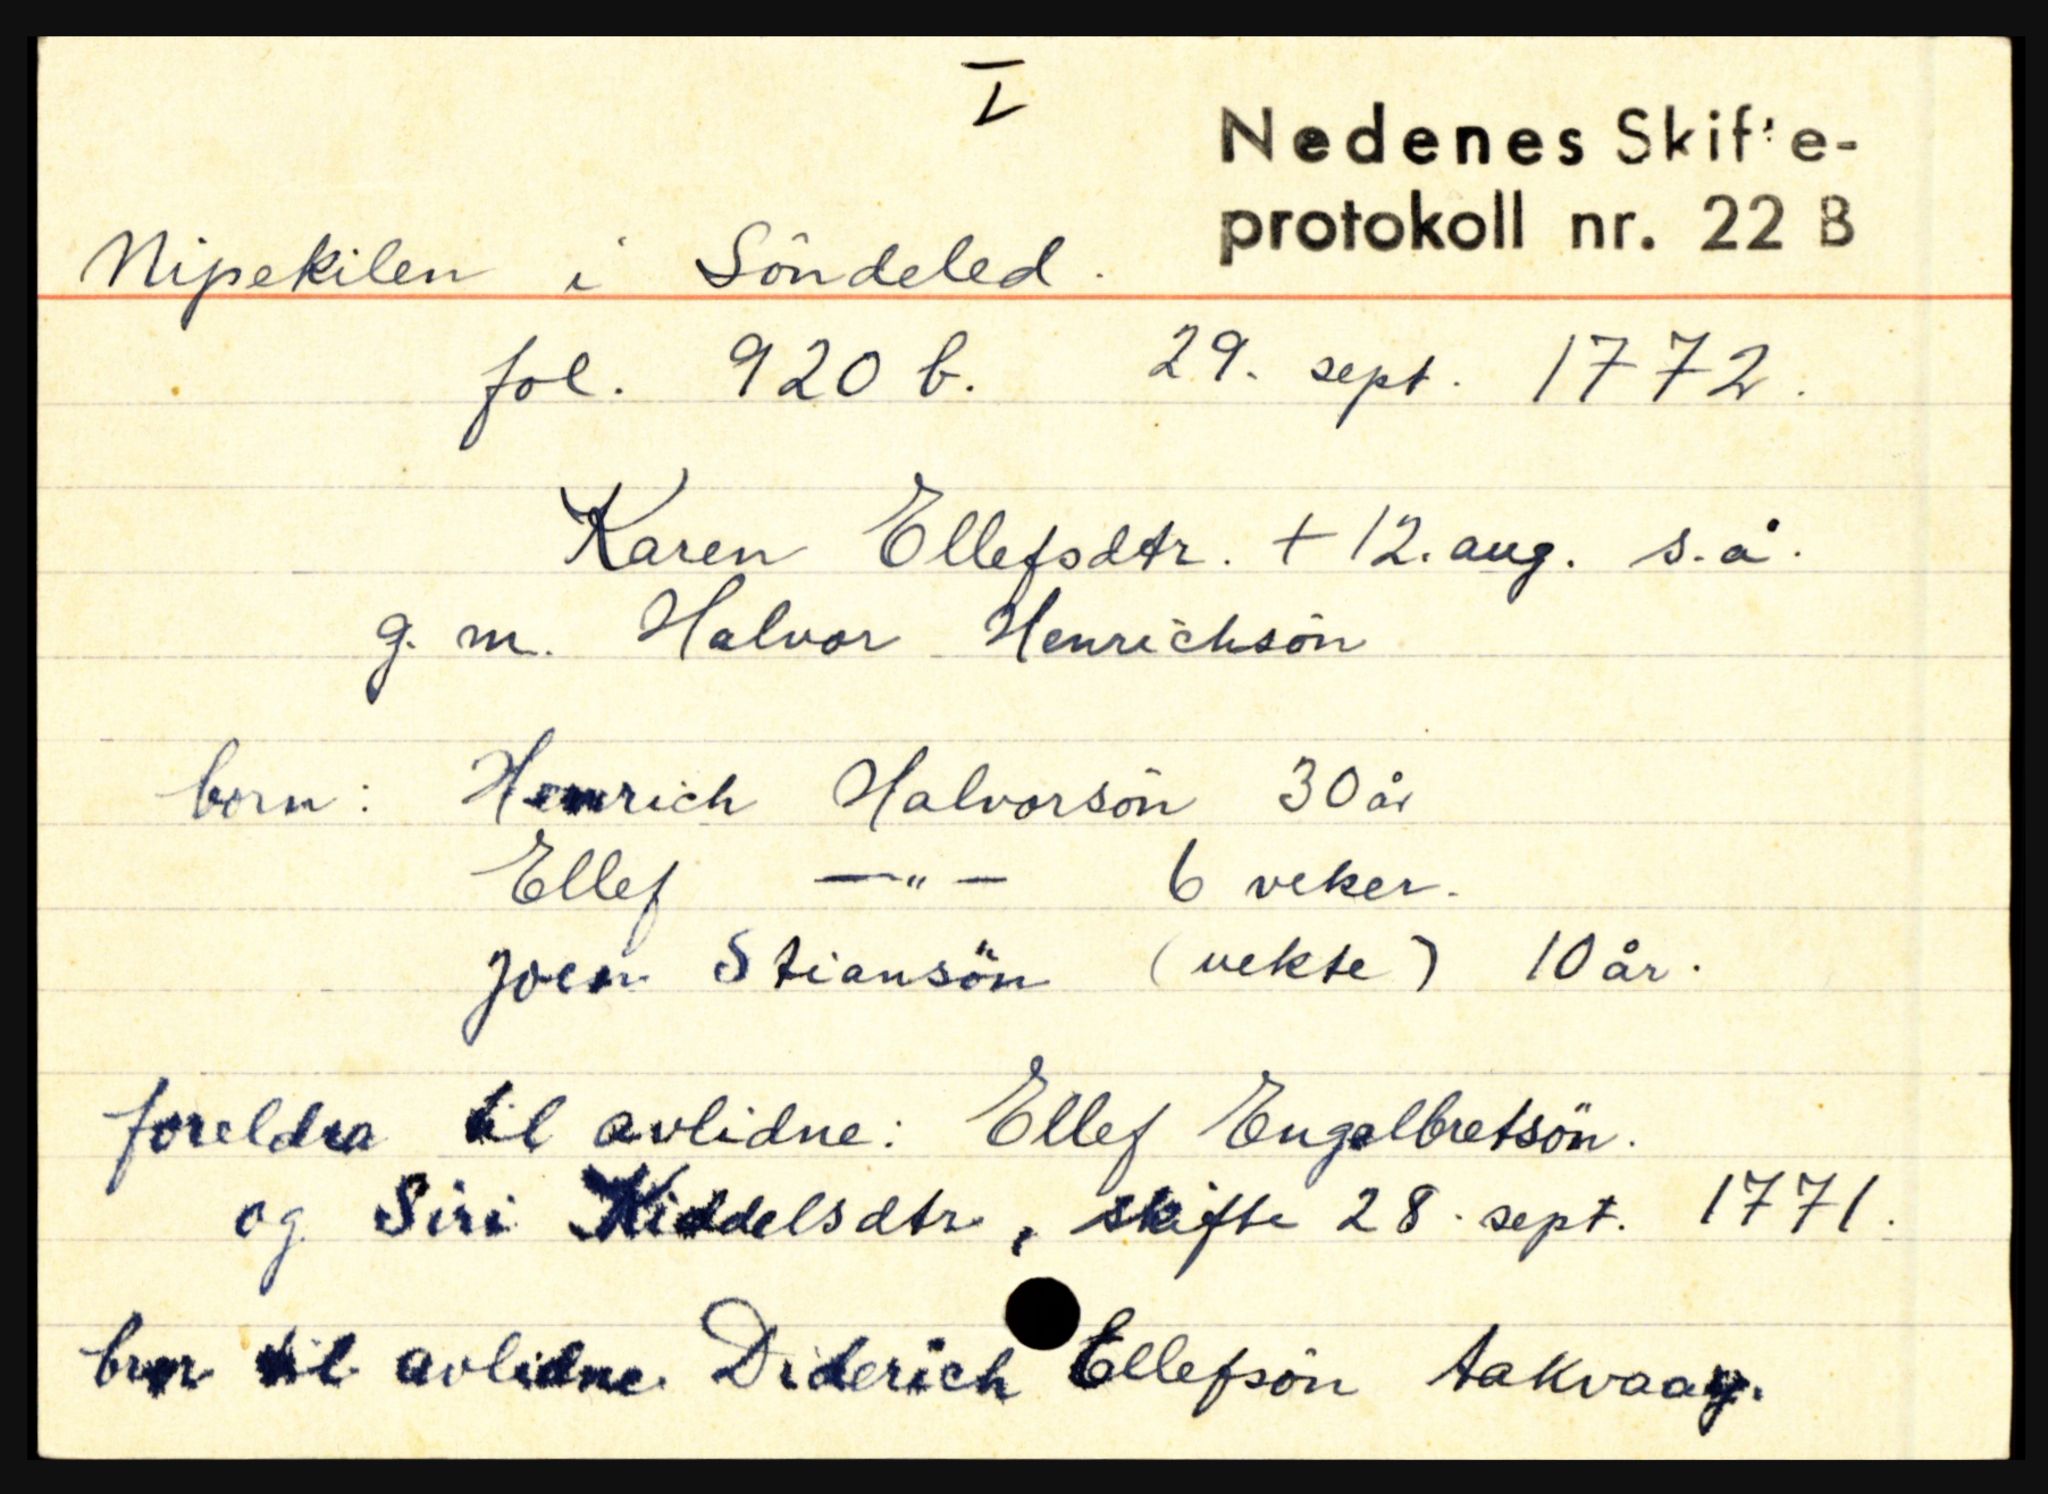 I
Nedenes Skifte-
protokoll nr. 22 B
Nipekilen i Söndeled.
fol. 920 b. 29. sept. 1772.
Karen Ellefsdtr. + 12. aug. s.å.
g. m. Halvor Henrichsön
born: Henrich Halvorsön 30 år
Ellef —"— 6 veker.
Joen Stiansön (uekte) 10 år.
foreldra til avlidne: Ellef Engelbretsön.
og Siri Kiddelsdtr, skifte 28. sept. 1771.
bror til avlidne Diderich Ellefsön Aakvaag.